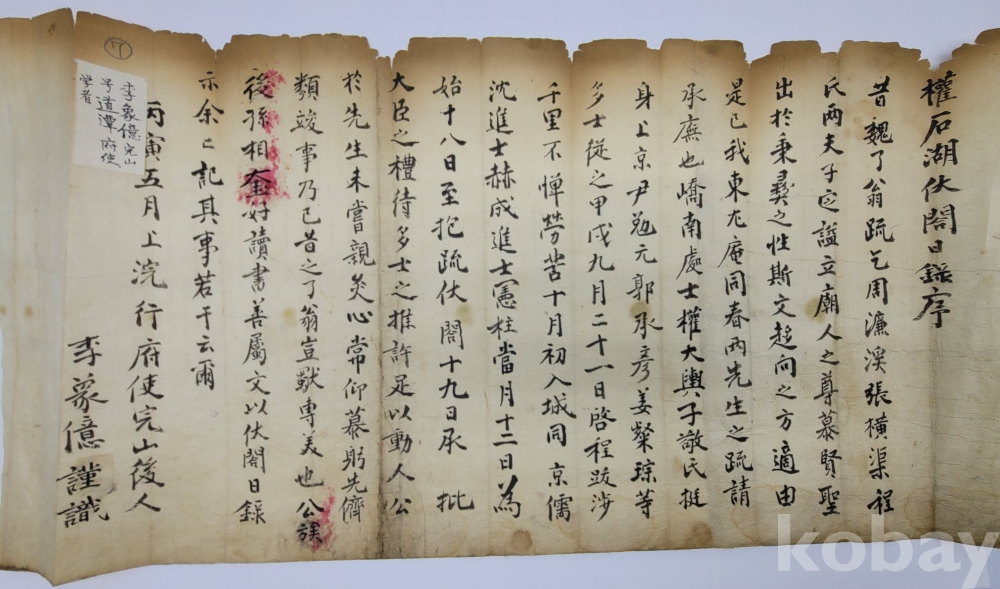 權石湖伏閤日錄序
昔魏了翁疏乞周濂溪張橫渠程
氏兩夫子定謚立廟人之尊慕賢聖
出於秉彝之性斯文趍向之方適由
是已我東尤庵同春兩先生之疏請
承廡也嶠南處士權大輿子敬氏挺
身上京尹勉元郭承彥姜粲琮等
多士從之甲戌九月二十一日啓程跋涉
千里不憚勞苦十月初入城同 京儒
沈進士赫成進士憲柱當月十二日為
始十八日至抱疏伏 閤十九日承 批
大臣之禮待多士之推許足以動人公
於先生未嘗親炙心常仰慕躬先儕
類竣事乃已昔之了翁豈獸專美也公族
後孫相奎好讀書善屬文以伏閤日錄
示余亡記其事若干云爾
丙寅五月上浣行府使完山後人
李象億謹識
李象億完山
号道潭府使
学者
17
kobay